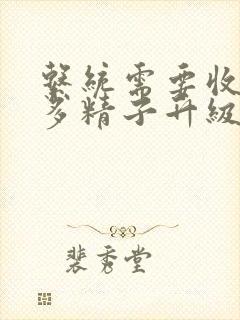 繫統需要收
多精子升級
裴秀堂